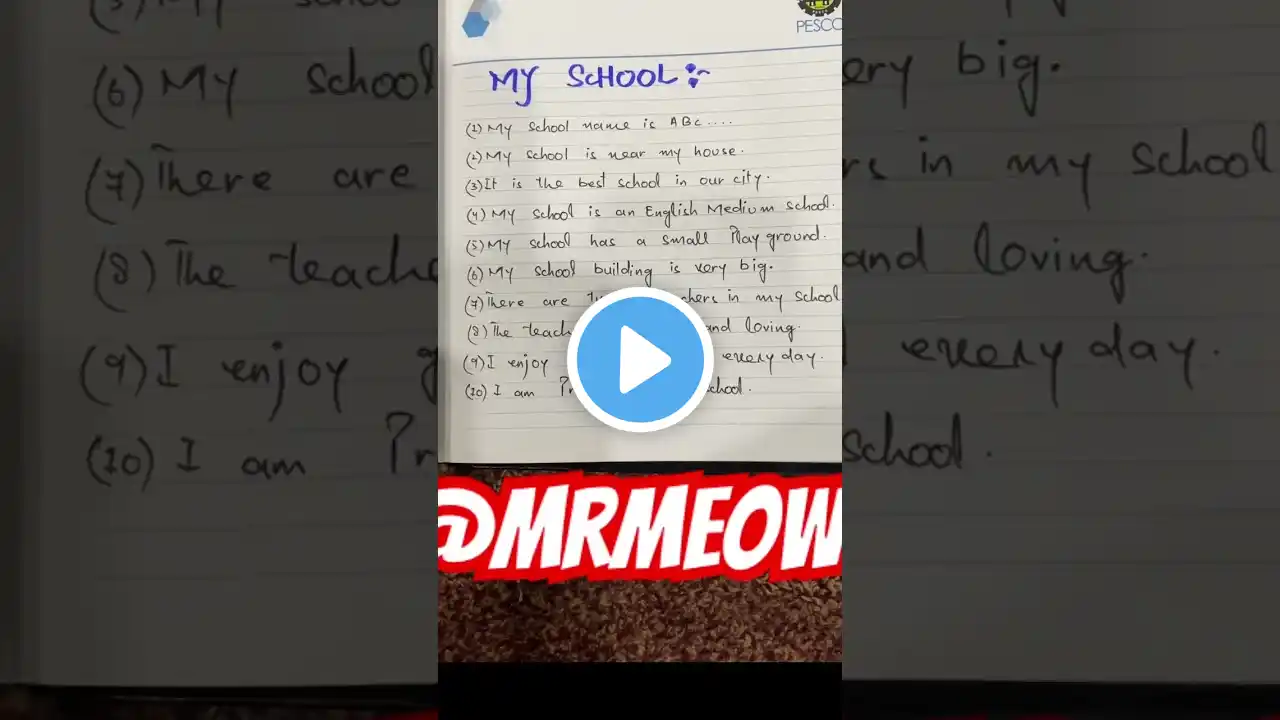 PESCO
MY SCHOOL :-
(1) My school name is ABC....
(2) My school is near my house.
(3) It is the best school in our city.
(4) My school is an English Medium school.
(5) My school has a small Play ground.
(6) My school building is very big.
(7) There are in my school
(8) The and loving.
(9) I enjoy every day.
(10) I am school.
@MRMEOW